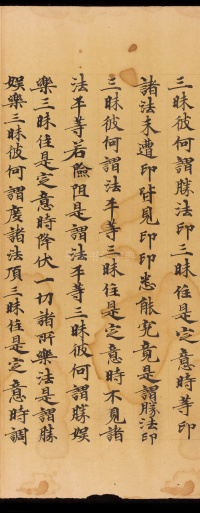 三昧彼何謂勝法印三昧住是定意時等印
諸法未遭印皆見印印悉能究竟是謂勝法印
三昧彼何謂法平等三昧住是定意時不見諸
法平等若儉阻是謂法平等三昧彼何謂勝娛
樂三昧住是定意時降伏一切諸所樂法是謂勝
娛樂三昧彼何謂度諸法頂三昧住是定意時調